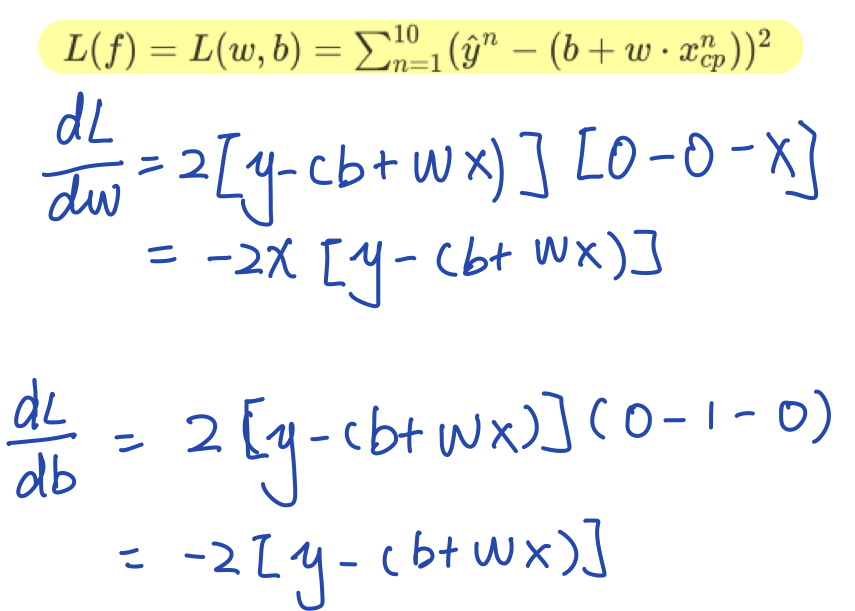 L(f) = L(w, b) = ∑_{n=1}^{10} (ŷ^n − (b + w · x_{cp}^n))^2
dL/dw = 2[y-(b+wx)] [0-0-x]
= -2x [y-(b+wx)]
dL/db = 2[y-(b+wx)](0-1-0)
= -2[y-(b+wx)]